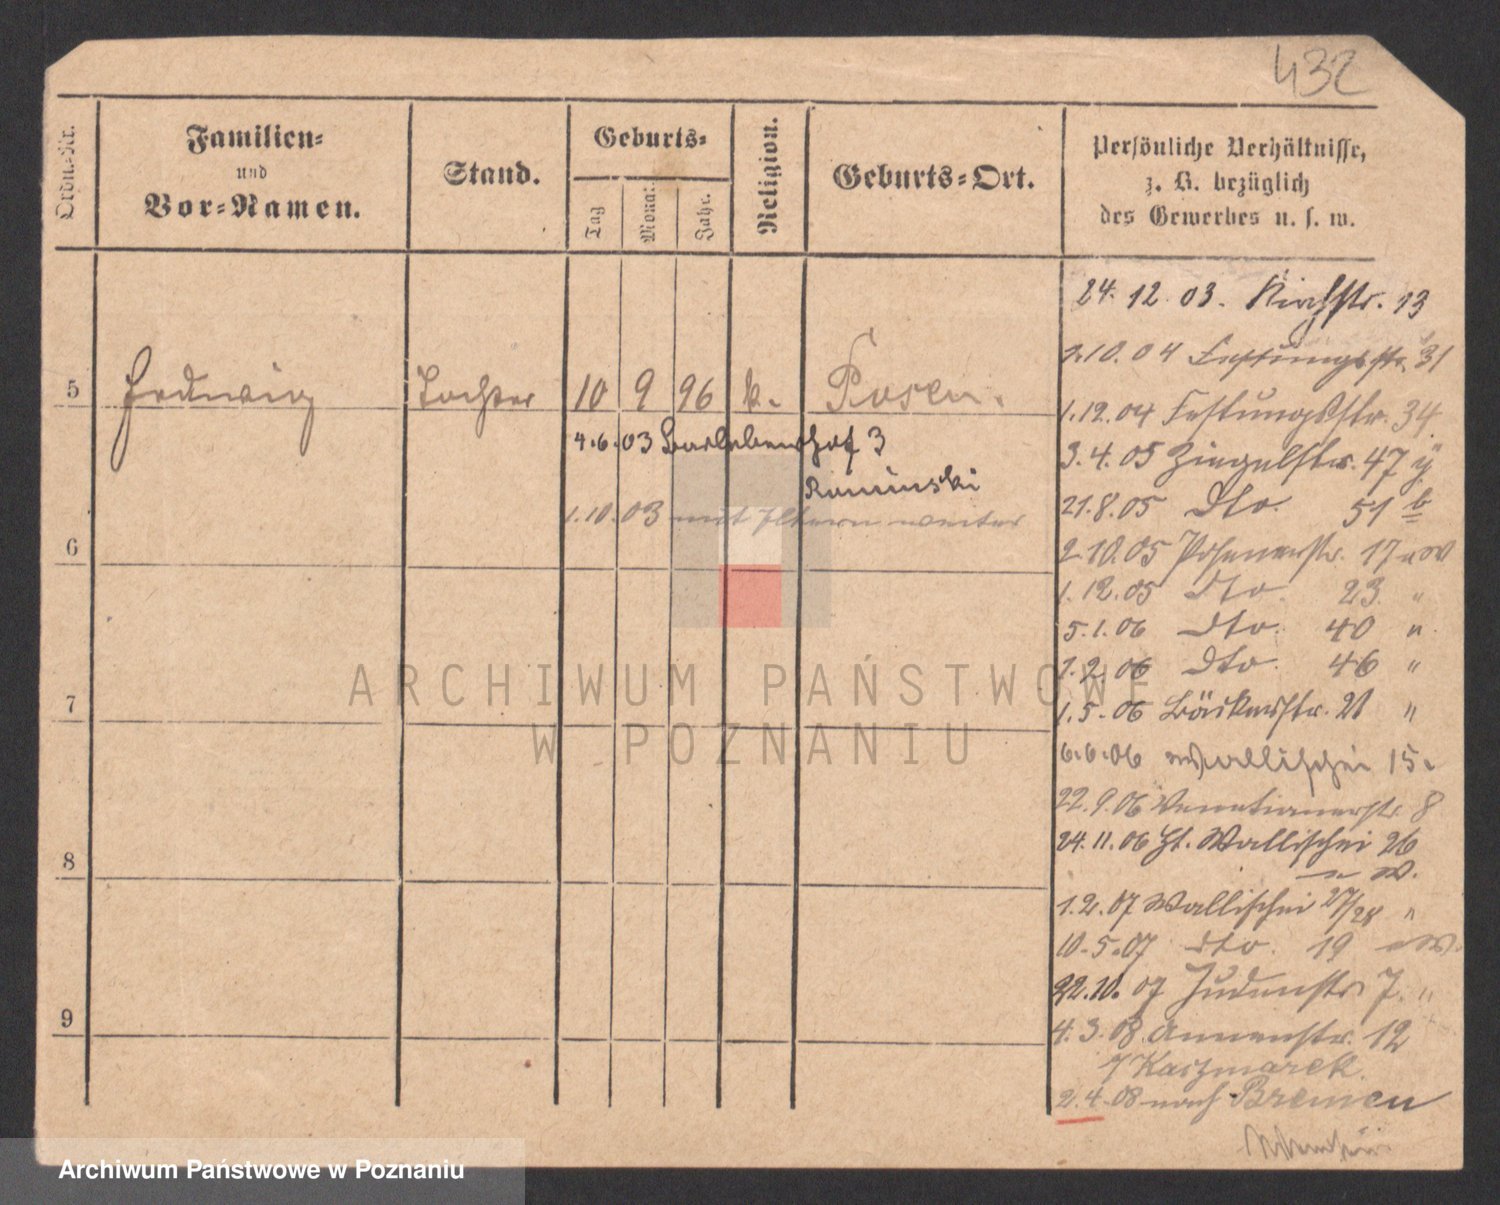 432
Ordn.-Nr.
Familien-
und
Vor-Namen.
Stand.
Geburts-
Tag
Monat
Jahr.
Religion.
Geburts-Ort.
Persönliche Verhältnisse,
z. B. bezüglich
des Gewerbes u. s. w.
24. 12. 03. Kirchstr. 13
1.10.04 Festungsstr. 31
1.12.04 Festungsstr. 34
5 Hedwig Tochter 10 9 96 k. Posen.
4.6.03 Barlebenshof 3
3.4.05 Ziegelstr. 47
Kaminski
21.8.05 Dto. 51 b
1.10.03 mit Eltern weiter
6
2.10.05 Posenerstr. 17
1.12.05 Dto. 23 "
5.1.06 Dto. 40 "
1.2.06 Dto. 46 "
7
1.5.06 Bäckerstr. 21 "
6.6.06 Wallischei 15.
22.9.06 Venetianerstr. 8
8
24.11.06 Wallischei 26
1.2.07 Wallischei 27/28 "
10.5.07 dto. 19
22.10.07 Judenstr. 7. "
9
4.3.08 Annenstr. 12
Kaczmarek.
2.4.08 nach Bremen
ARCHIWUM PAŃSTWOWE
W POZNANIU
Archiwum Państwowe w Poznaniu